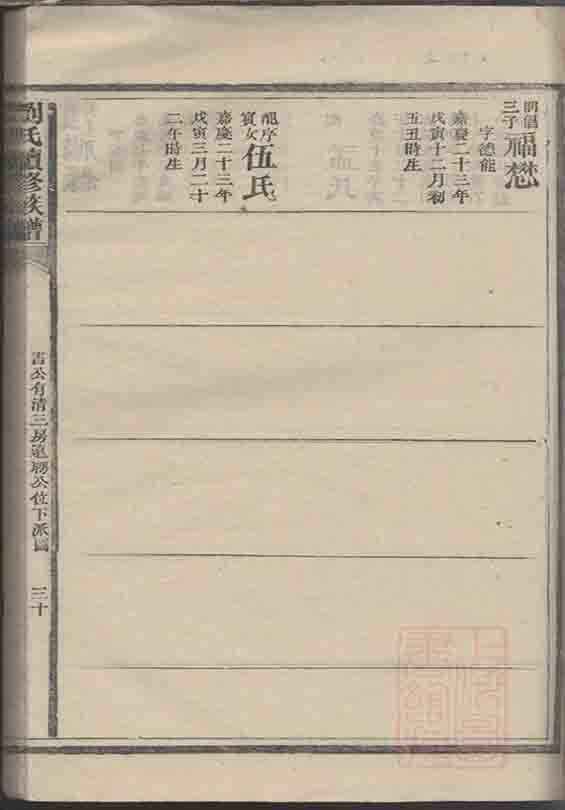 三子福懋
字德能
嘉慶二十三年
戊寅十二月初
五丑時生
龍序
賓女伍氏
嘉慶二十三年
戊寅三月二十
二午時生
劉氏續修族譜
公有清三房
公位下派
三十